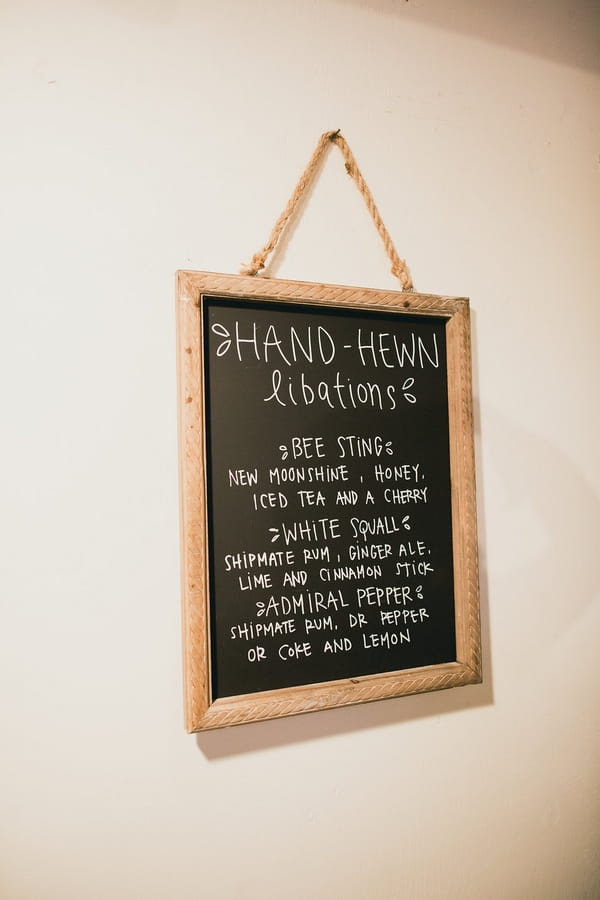 HAND-HEWN
libations
BEE STING
NEW MOONSHINE, HONEY,
ICED TEA AND A CHERRY
WHITE SQUALL
SHIPMATE RUM, GINGER ALE,
LIME AND CINNAMON STICK
ADMIRAL PEPPER
SHIPMATE RUM, DR PEPPER
OR COKE AND LEMON